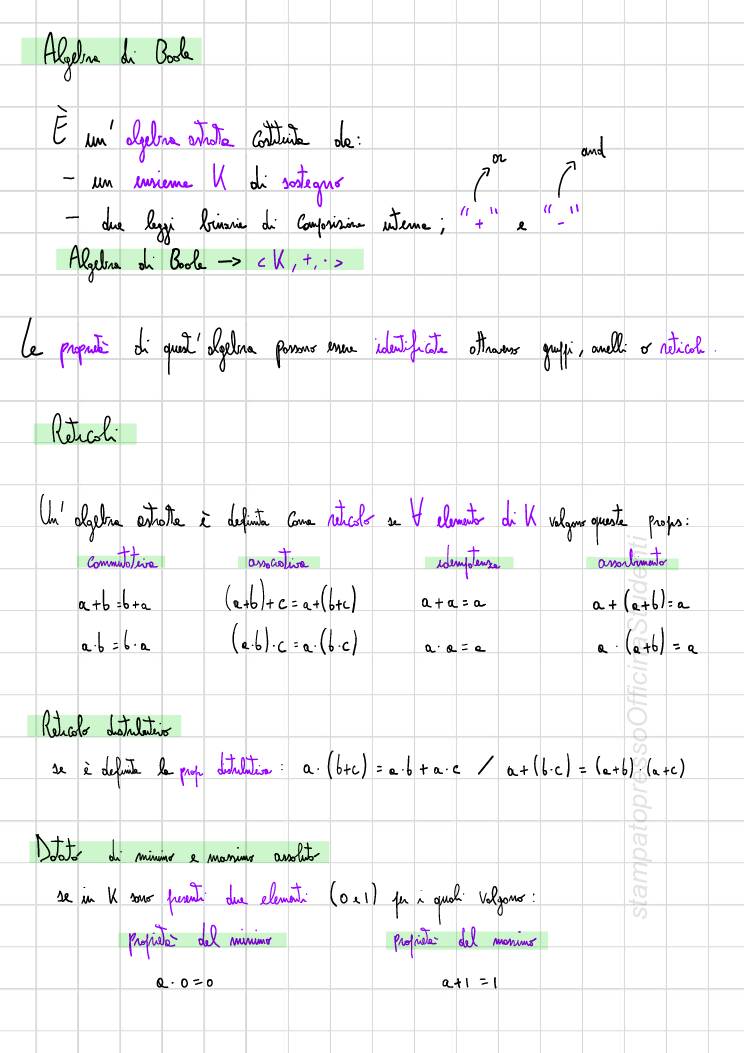 Algebra di Boole
È un' algebra astratta costituita da:
- un insieme K di sostegno
or
and
- due leggi binarie di composizione interne; "+" e "-"
Algebra di Boole → <K, +, ·>
Le proprietà di quest' algebra possono essere identificate attraverso gruppi, anelli o reticoli.
Reticoli
Un' algebra astratta è definita come reticolo se ∀ elemento di K valgono queste props:
commutativa associativa idempotenza assorbimento
a+b=b+a (a+b)+c=a+(b+c) a+a=a a+(a+b)=a
a·b=b·a (a·b)·c=a·(b·c) a·a=a a·(a+b)=a
Reticolo distributivo
se è definita la prop distributiva: a·(b+c)=a·b+a·c / a+(b·c)=(a+b)·(a+c)
Dotato di minimo e massimo assoluto
se in K sono presenti due elementi (0 e 1) per i quali valgono:
proprietà del minimo proprietà del massimo
a·0=0 a+1=1
stampatopressoOfficinaStudenti